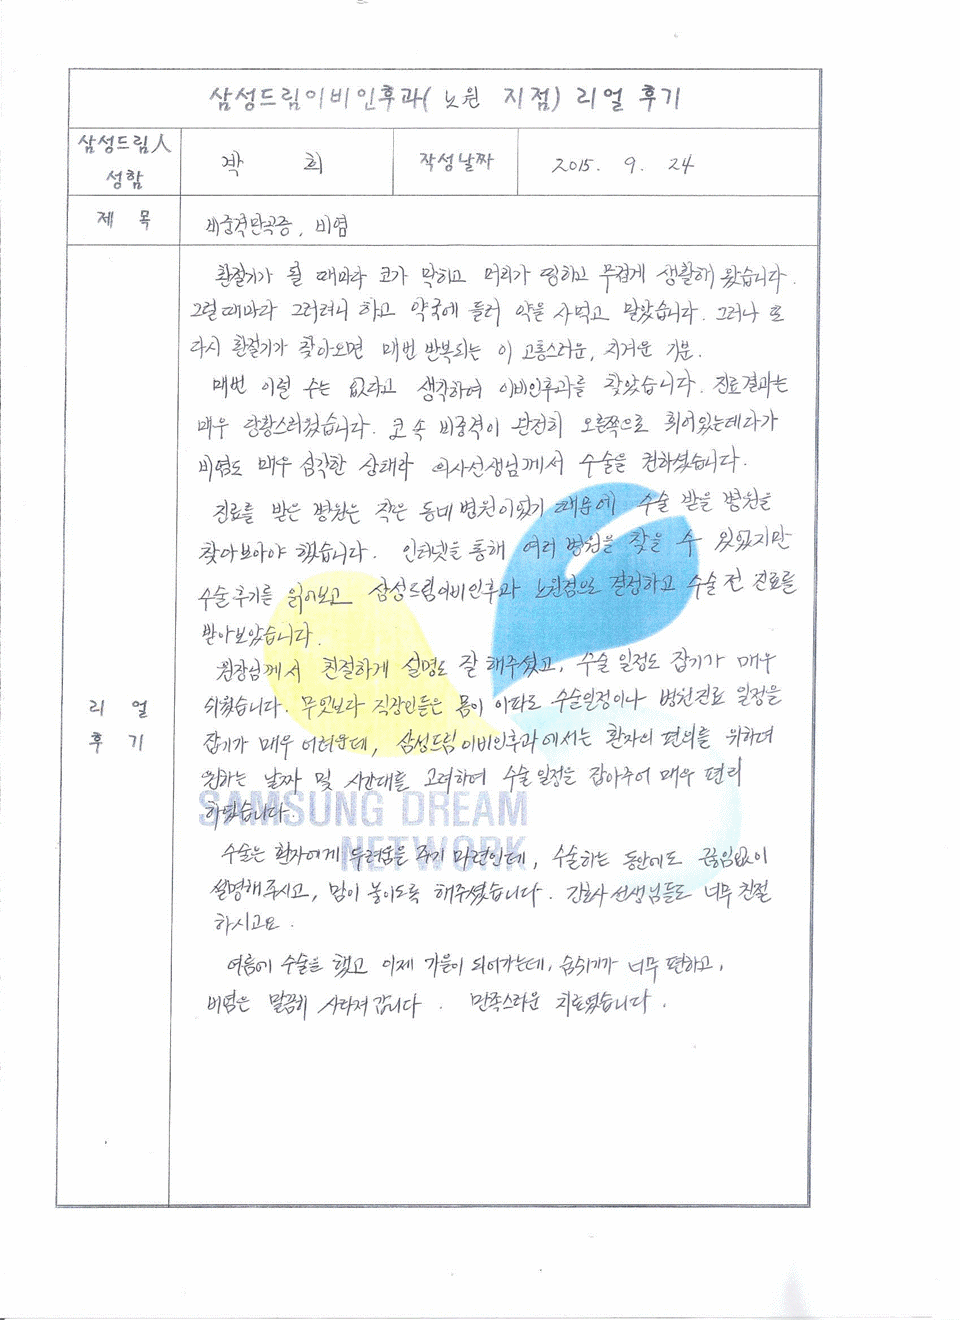 삼성드림이비인후과( 노원 지점) 리얼 후기
삼성드림人
성함
박 희
작성날짜
2015. 9. 24
제 목
비중격만곡증, 비염
환절기가 될 때마다 코가 막히고 머리가 띵하고 무겁게 생활해 왔습니다.
그럴때마다 그러려니 하고 약국에 들러 약을 사먹고 말았습니다. 그러나 또
다시 환절기가 찾아오면 매번 반복되는 이 고통스러운, 지겨운 기분.
매번 이럴 수는 없다고 생각하여 이비인후과를 찾았습니다. 진료결과는
매우 당황스러웠습니다. 코 속 비중격이 완전히 오른쪽으로 휘어있는데다가
비염도 매우 심각한 상태라 의사선생님께서 수술을 권하셨습니다.
진료를 받은 병원은 작은 동네 병원이었기 때문에 수술 받을 병원을
찾아보아야 했습니다. 인터넷을 통해 여러 병원을 찾을 수 있었지만
수술후기를 읽어보고 삼성드림이비인후과 노원점으로 결정하고 수술 전 진료를
받아보았습니다.
원장님께서 친절하게 설명도 잘 해주셨고, 수술 일정도 잡기가 매우
쉬웠습니다. 무엇보다 직장인들은 몸이 아파도 수술일정이나 병원진료 일정을
잡기가 매우 어려운데, 삼성드림이비인후과에서는 환자의 편의를 위하여
원하는 날짜 및 시간대를 고려하여 수술일정을 잡아주어 매우 편리
하였습니다.
SAMSUNG DREAM
NETWORK
수술은 환자에게 두려움을 주기 마련인데, 수술하는 동안에도 끊임없이
설명해주시고, 맘이 놓이도록 해주셨습니다. 간호사 선생님들도 너무 친절
하시고요.
여름에 수술을 했고 이제 가을이 되어가는데, 숨쉬기가 너무 편하고,
비염은 말끔히 사라져 갑니다. 만족스러운 치료였습니다.
리 얼
후 기